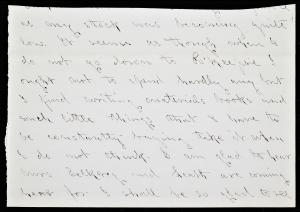 as my stock was becoming quite
low. It seems as though when I
do not go down to I
ought not to spend hardly any but
I find writing materials books and
such little things that I have to
be constantly buying take it when
I do not think. I am glad to hear
Mrs. and are coming
here for I shall be so glad to see